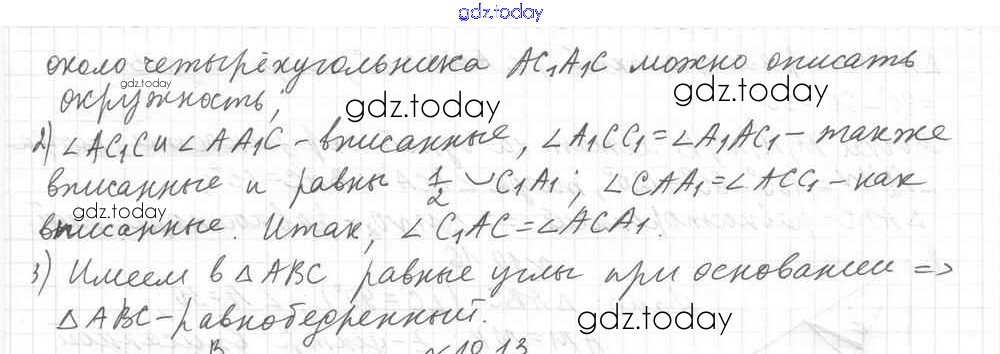 gdz.today
около четырёхугольника AC₁A₁C можно описать
gdz.today
окружность;
gdz.today
gdz.today
2) ∠AC₁C и ∠AA₁C – вписанные, ∠A₁CC₁ = ∠A₁AC₁ – также
вписанные и равны 1/2 ◡C₁A₁; ∠CAA₁ = ∠ACC₁ – как
gdz.today
вписанные. Итак, ∠C₁AC = ∠ACA₁.
3) Имеем в △ABC равные углы при основании =>
△ABC – равнобедренный.
gdz.today